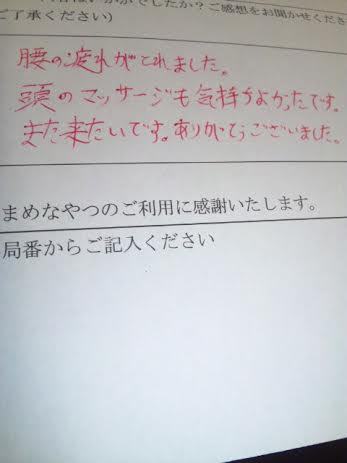 かがでしたか？ご感想をお聞かせくださ
ご了承ください）
腰の疲れがとれました。
頭のマッサージも気持ちよかったです。
また来たいです。ありがとうございました。
まめなやつのご利用に感謝いたします。
局番からご記入ください